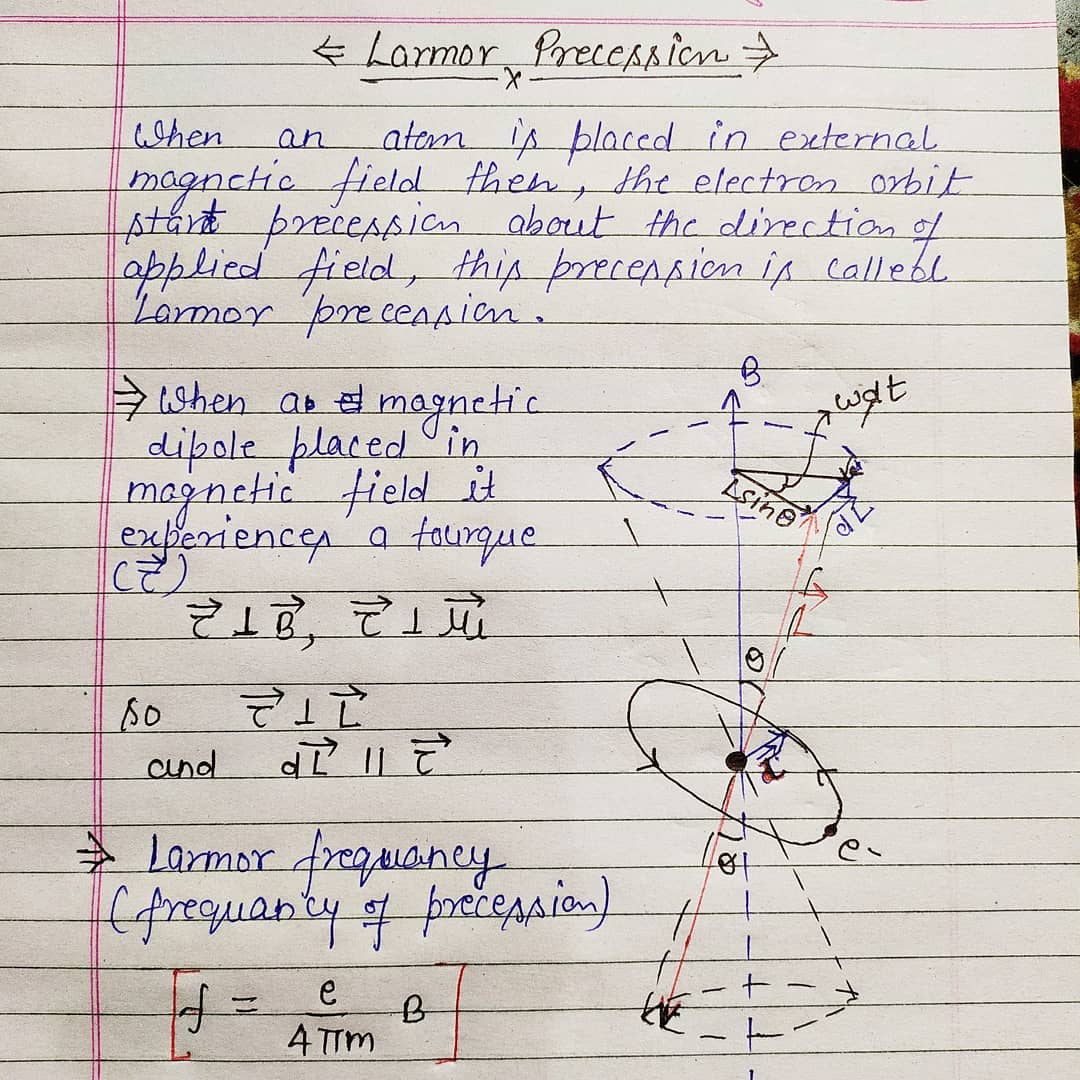 ⇐ Larmor Precession ⇒
x
When an atom is placed in external
magnetic field then, the electron orbit
start precession about the direction of
applied field, this precession is called
Larmor precession.
⇒ When a magnetic
dipole placed in
magnetic field it
experiences a tourque
(τ⃗)
τ⃗ ⊥ B⃗, τ⃗ ⊥ μ⃗
so τ⃗ ⊥ L⃗
and dL⃗ || τ⃗
⇒ Larmor frequancy
(frequancy of precession)
[f = e/4πm B]
B
ωdt
Lsinθ
dL
L⃗
θ
e-
θ